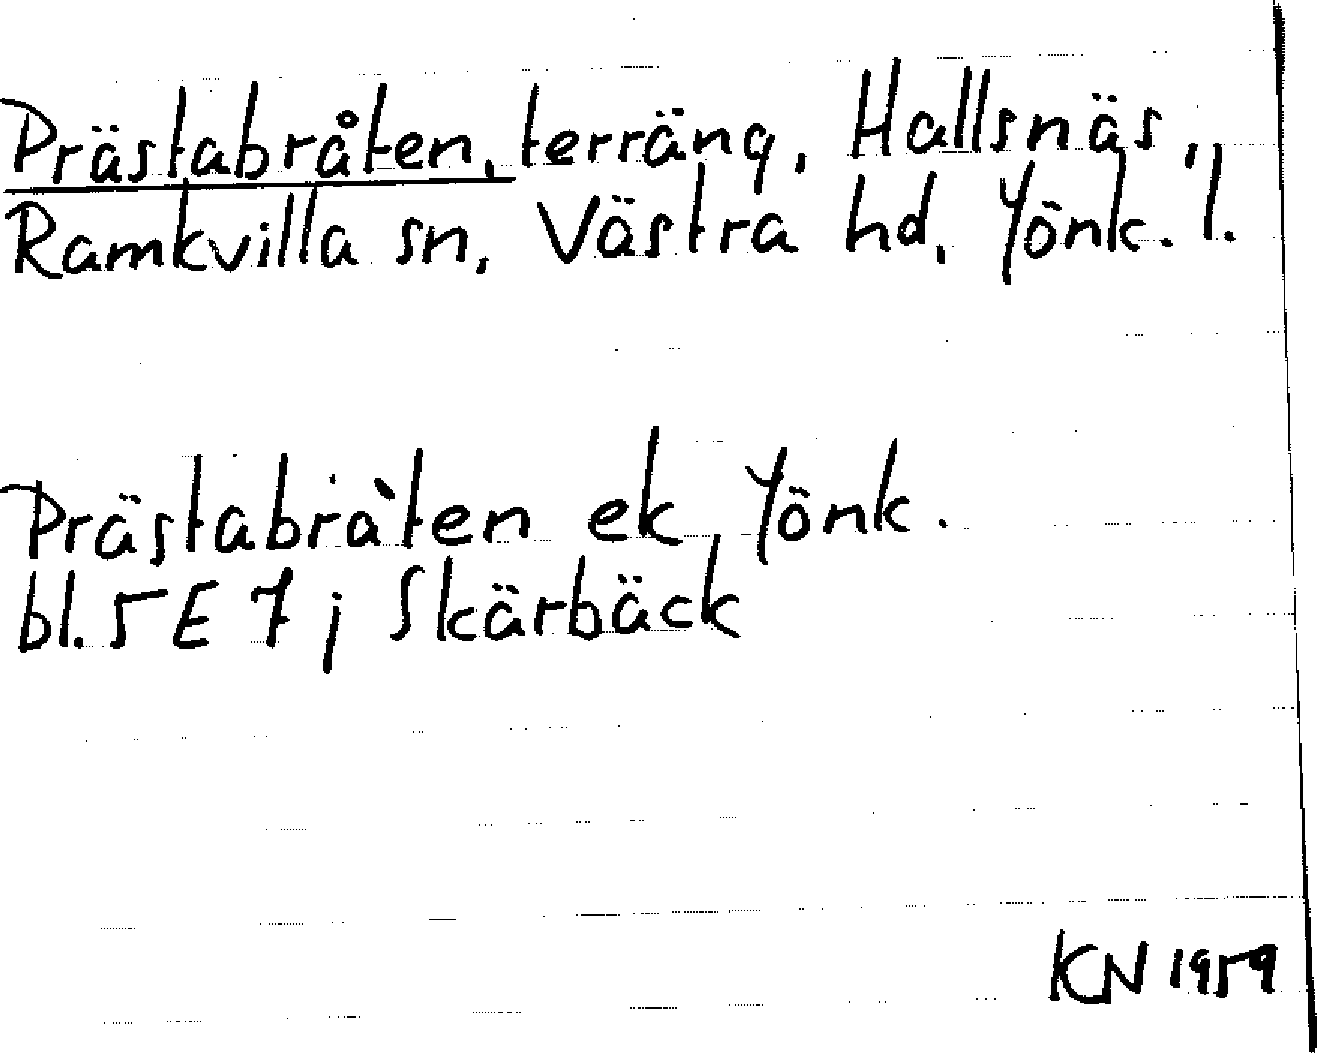 Prästabråten, terräng, Hallsnäs,
Ramkvilla sn, Västra hd, Jönk. l.
Prästabråten ek Jönk.
bl. 5 E 7 j Skärbäck
KN 1959